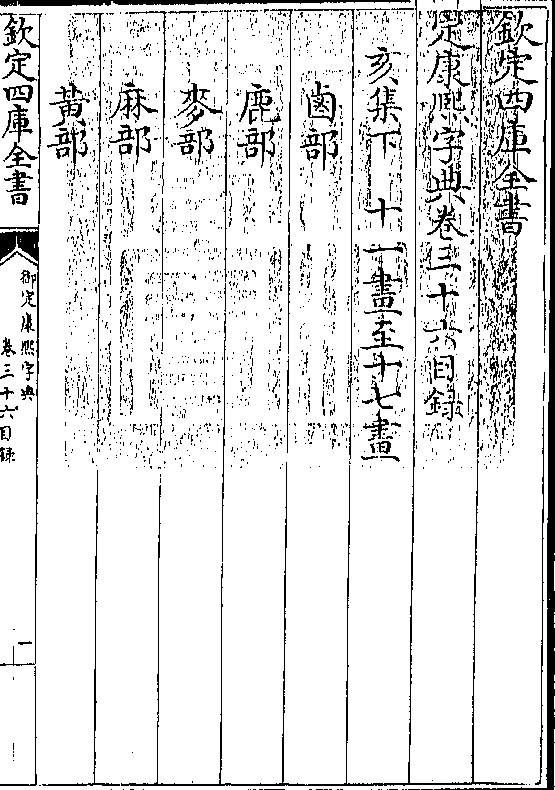 欽定四庫全書
定康熙字典卷三十六目録
亥集下　十一畫至十七畫
鹵部
鹿部
麥部
麻部
黃部
欽定四庫全書
御定康熙字典
卷三十六目録
一